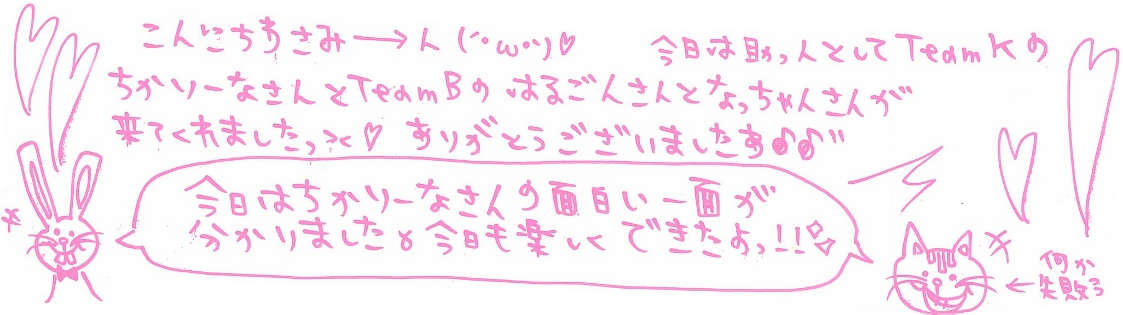 こんにちわさみ→ん(´･ω･`)♡ 今日は助っ人としてTeamKの
ちかりーなさんとTeamBのはるごんさんとなっちゃんさんが
来てくれましたっ><♡ ありがとうございましたあ♪♪"
今日はちかりーなさんの面白い一面が
分かりました。今日も楽しくできたよっ!!
←何か
失敗う